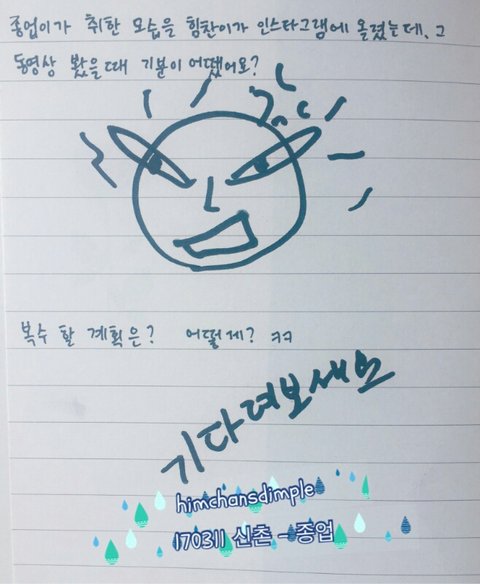 종업이가 취한 모습을 힘찬이가 인스타그램에 올렸는데, 그
동영상 봤을때 기분이 어땠어요?
복수 할 계획은? 어떻게? ㅋㅋ
기다려보세요
himchansdimple
170311 신촌 - 종업